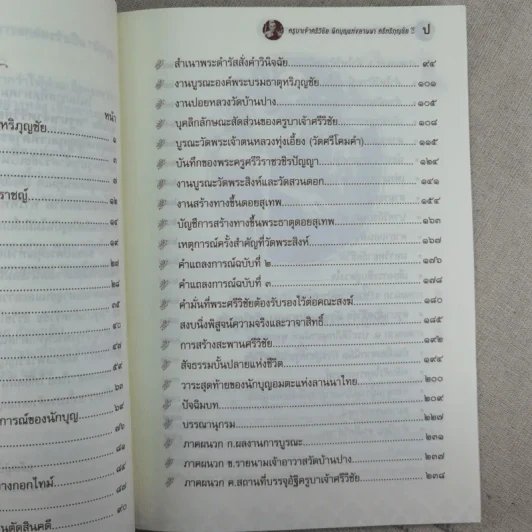 หน้า
หริภุญชัย............ ๑
๕
ราชญ์ ๑๒
๑๔
๑๙
๒๔
๒๘
๓๕
๔๐
๕๗
๕๙
๖๓
การณ์ของนักบุญ ๖๔
๗๖
๘๑
๘๔
างกอกไทม์ ๘๗
๙๐
นตัดสินคดี
ครูบาเจ้าศรีวิชัย นักบุญแห่งลานนา ศรีหริภุญชัย ป
สำเนาพระดำรัสสั่งคำวินิจฉัย ๙๔
งานบูรณะองค์พระบรมธาตุหริภุญชัย ๑๐๑
งานปอยหลวงวัดบ้านปาง ๑๐๕
บุคลิกลักษณะสัดส่วนของครูบาเจ้าศรีวิชัย ๑๐๘
บูรณะวัดพระเจ้าตนหลวงทุ่งเอี้ยง (วัดศรีโคมคำ) ๑๑๕
บันทึกของพระครูศรีวิราชวชิรปัญญา ๑๒๔
งานบูรณะวัดพระสิงห์และวัดสวนดอก ๑๔๑
งานสร้างทางขึ้นดอยสุเทพ ๑๕๔
บัญชีการสร้างทางขึ้นพระธาตุดอยสุเทพ ๑๖๓
เหตุการณ์ครั้งสำคัญที่วัดพระสิงห์ ๑๖๗
คำแถลงการณ์ฉบับที่ ๒ ๑๗๖
คำแถลงการณ์ฉบับที่ ๓ ๑๗๘
คำมั่นที่พระศรีวิชัยต้องรับรองไว้ต่อคณะสงฆ์ ๑๘๐
สงบนิ่งพิสูจน์ความจริงและวาจาสิทธิ์ ๑๘๕
การสร้างสะพานศรีวิชัย ๑๙๒
สัจธรรมบั้นปลายแห่งชีวิต ๑๙๔
วาระสุดท้ายของนักบุญอมตะแห่งลานนาไทย ๒๐๐
ปัจฉิมบท ๒๐๙
บรรณานุกรม ๒๒๗
ภาคผนวก ก.ผลงานการบูรณะ ๒๓๑
ภาคผนวก ข.รายนามเจ้าอาวาสวัดบ้านปาง ๒๓๗
ภาคผนวก ค.สถานที่บรรจุอัฐิครูบาเจ้าศรีวิชัย ๒๓๘